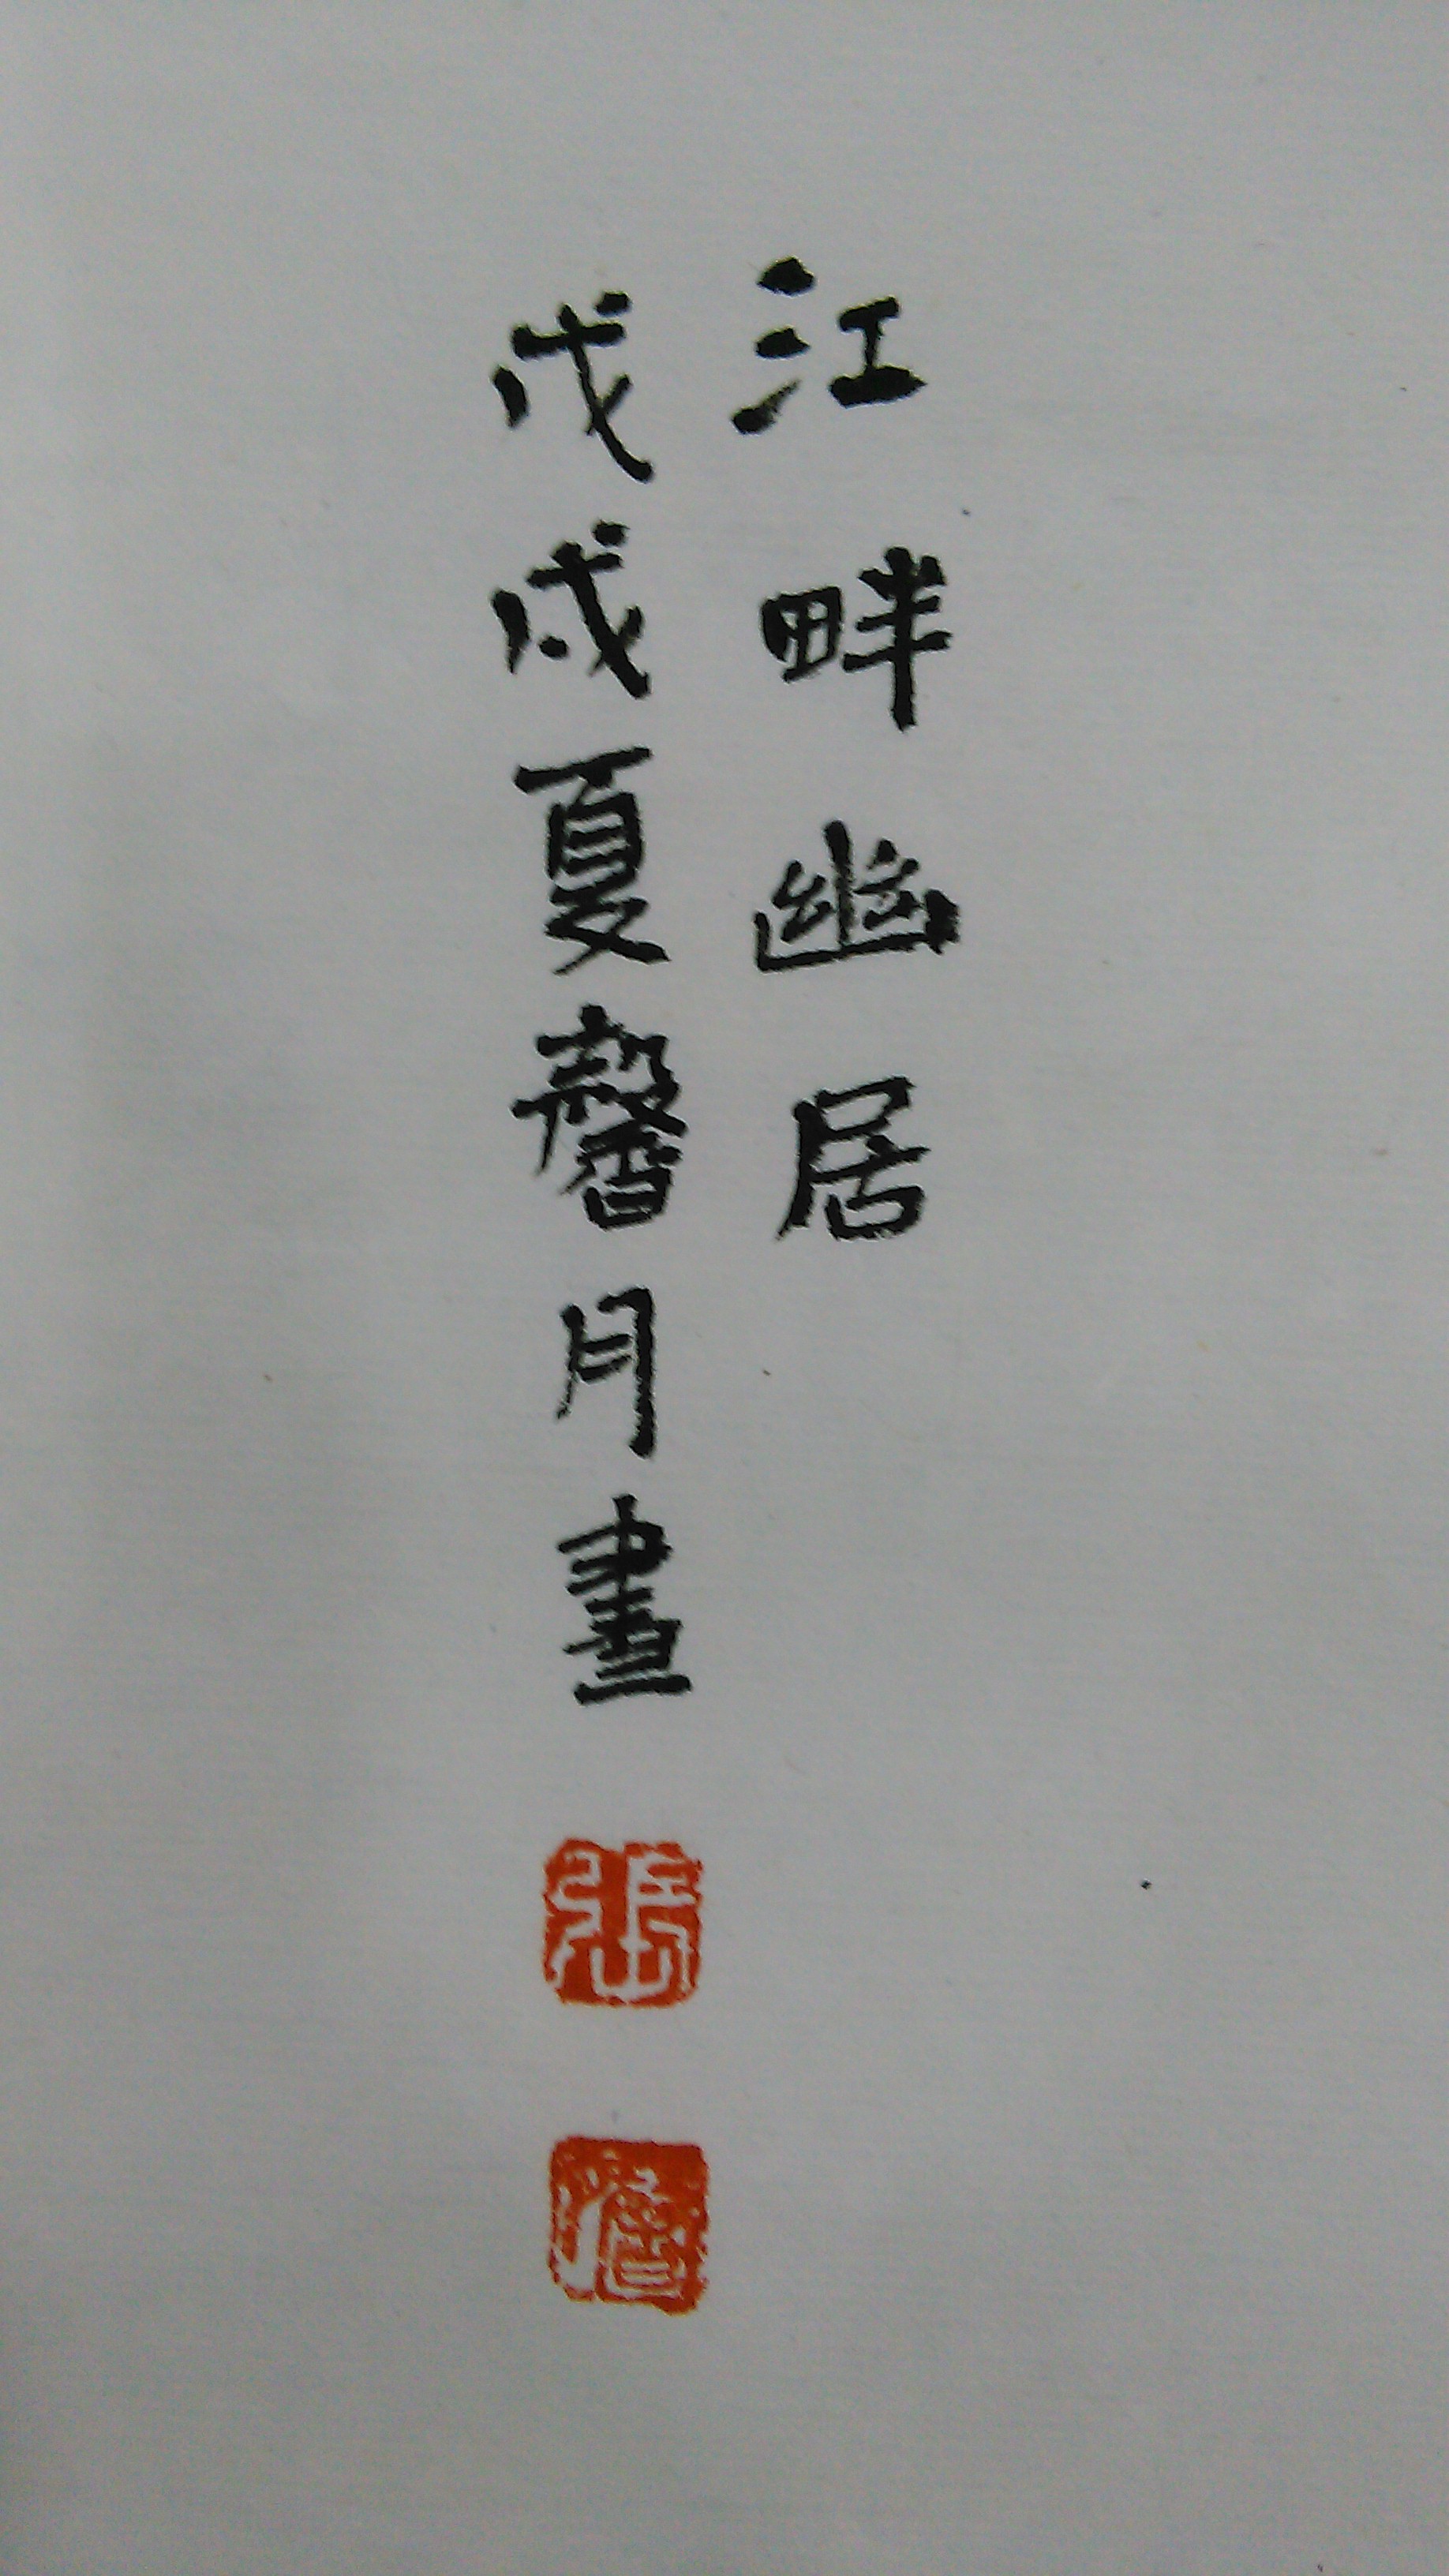 江畔幽居
戊戌夏馨月畫
張